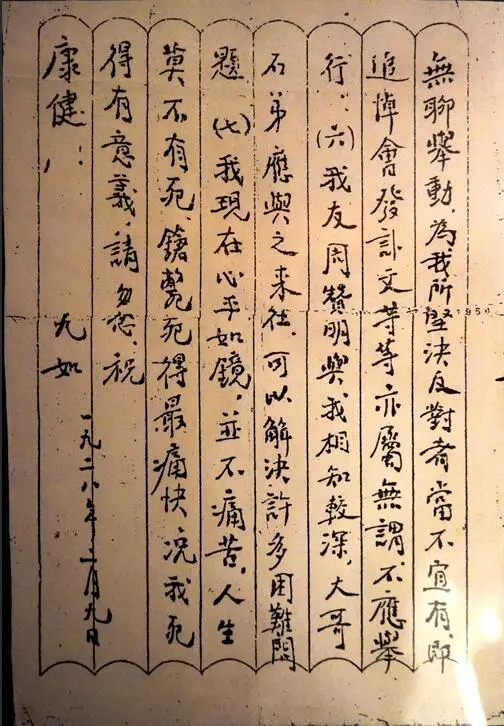 無聊舉動，為我所堅決反對者，當不宜有，即
追悼會發訃文等等亦屬無謂，不應舉
行：(六)我友周贊明與我相知較深，大哥
石弟應與之来往，可以解決許多困難問
題(七)我現在心平如鏡，並不痛苦，人生
莫不有死，鎗斃死得最痛快，況我死
得有意義，請勿念，祝
康健！
九如
一九二八年二月九日
1950